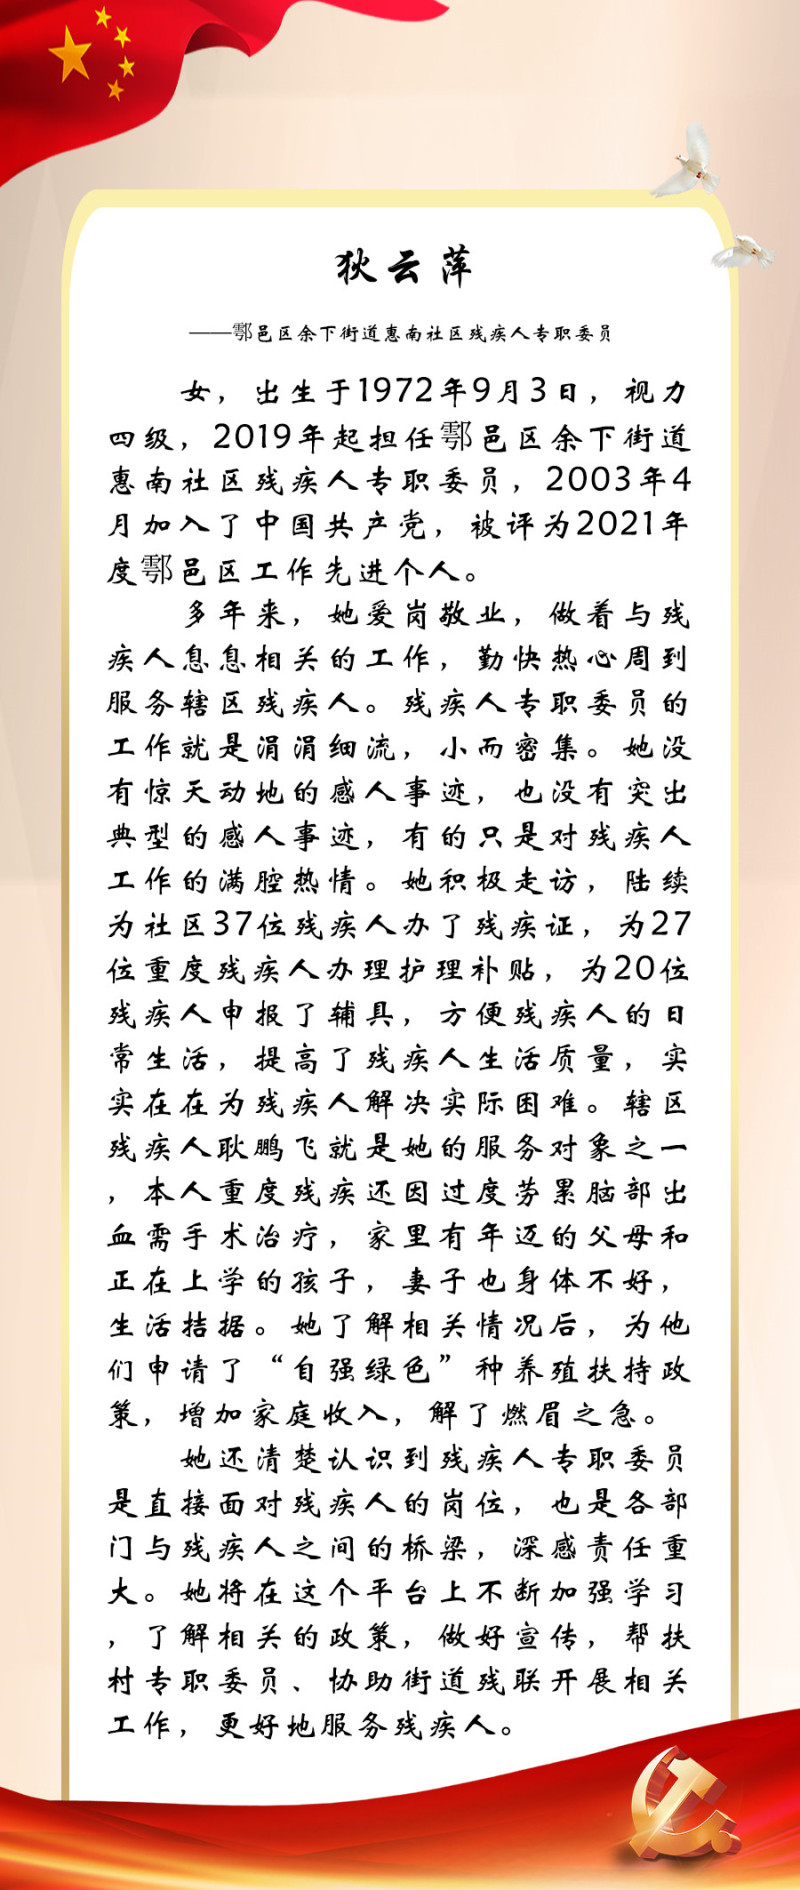 狄云萍
——鄠邑区余下街道惠南社区残疾人专职委员
女，出生于1972年9月3日，视力
四级，2019年起担任鄠邑区余下街道
惠南社区残疾人专职委员，2003年4
月加入了中国共产党，被评为2021年
度鄠邑区工作先进个人。
多年来，她爱岗敬业，做着与残
疾人息息相关的工作，勤快热心周到
服务辖区残疾人。残疾人专职委员的
工作就是涓涓细流，小而密集。她没
有惊天动地的感人事迹，也没有突出
典型的感人事迹，有的只是对残疾人
工作的满腔热情。她积极走访，陆续
为社区37位残疾人办了残疾证，为27
位重度残疾人办理护理补贴，为20位
残疾人申报了辅具，方便残疾人的日
常生活，提高了残疾人生活质量，实
实在在为残疾人解决实际困难。辖区
残疾人耿鹏飞就是她的服务对象之一
，本人重度残疾还因过度劳累脑部出
血需手术治疗，家里有年迈的父母和
正在上学的孩子，妻子也身体不好，
生活拮据。她了解相关情况后，为他
们申请了“自强绿色”种养殖扶持政
策，增加家庭收入，解了燃眉之急。
她还清楚认识到残疾人专职委员
是直接面对残疾人的岗位，也是各部
门与残疾人之间的桥梁，深感责任重
大。她将在这个平台上不断加强学习
，了解相关的政策，做好宣传，帮扶
村专职委员、协助街道残联开展相关
工作，更好地服务残疾人。